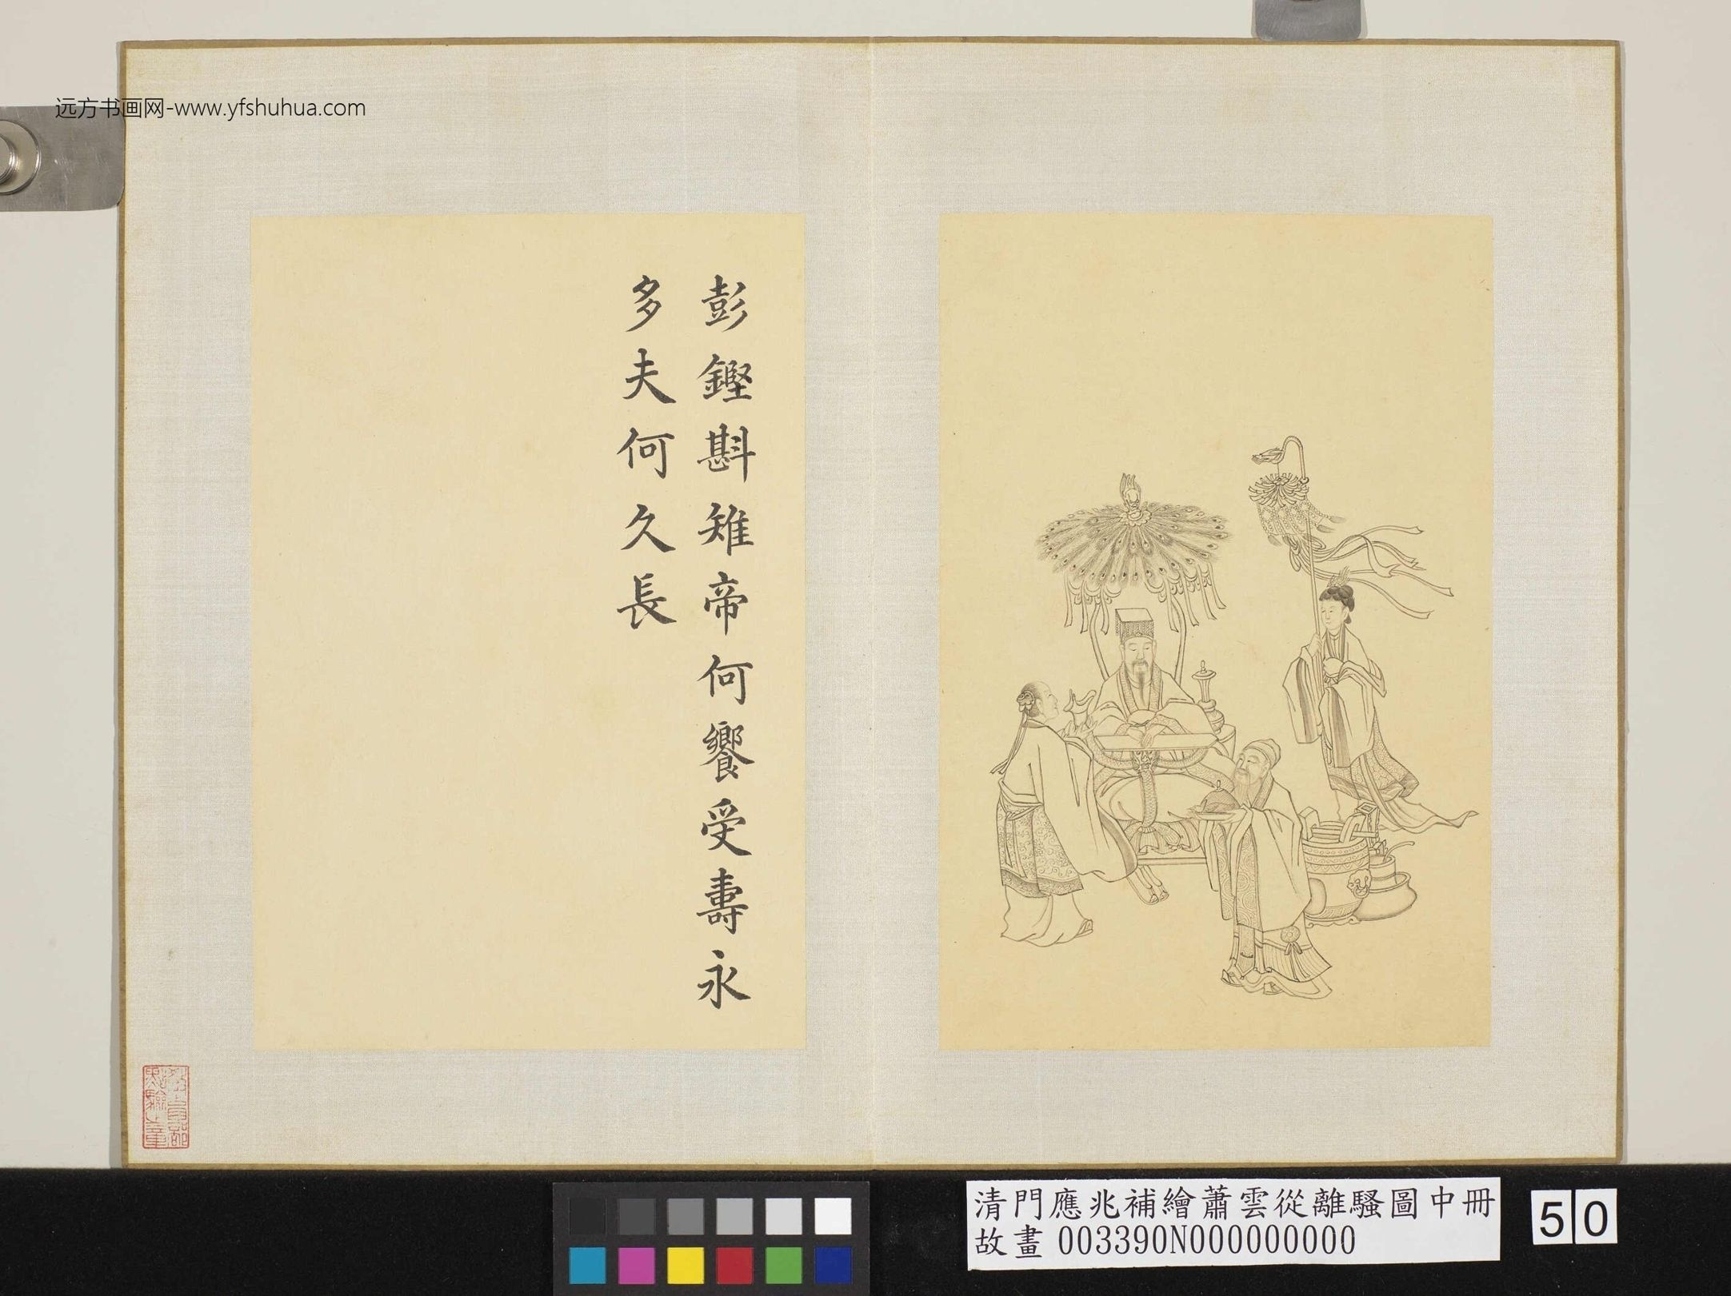 远方书画网-www.yfshuhua.com
彭鏗斟雉帝何饗受壽永
多夫何久長
清門應兆補繪蕭雲從離騷圖中冊
故畫 003390N000000000
50